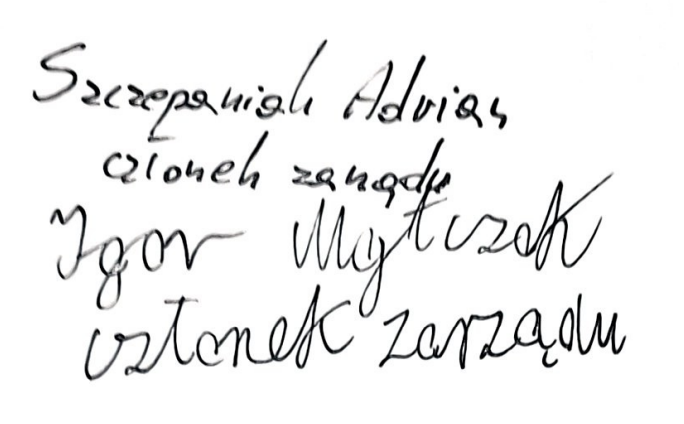 Szczepaniak Adrian
członek zarządu
Igor
członek zarządu